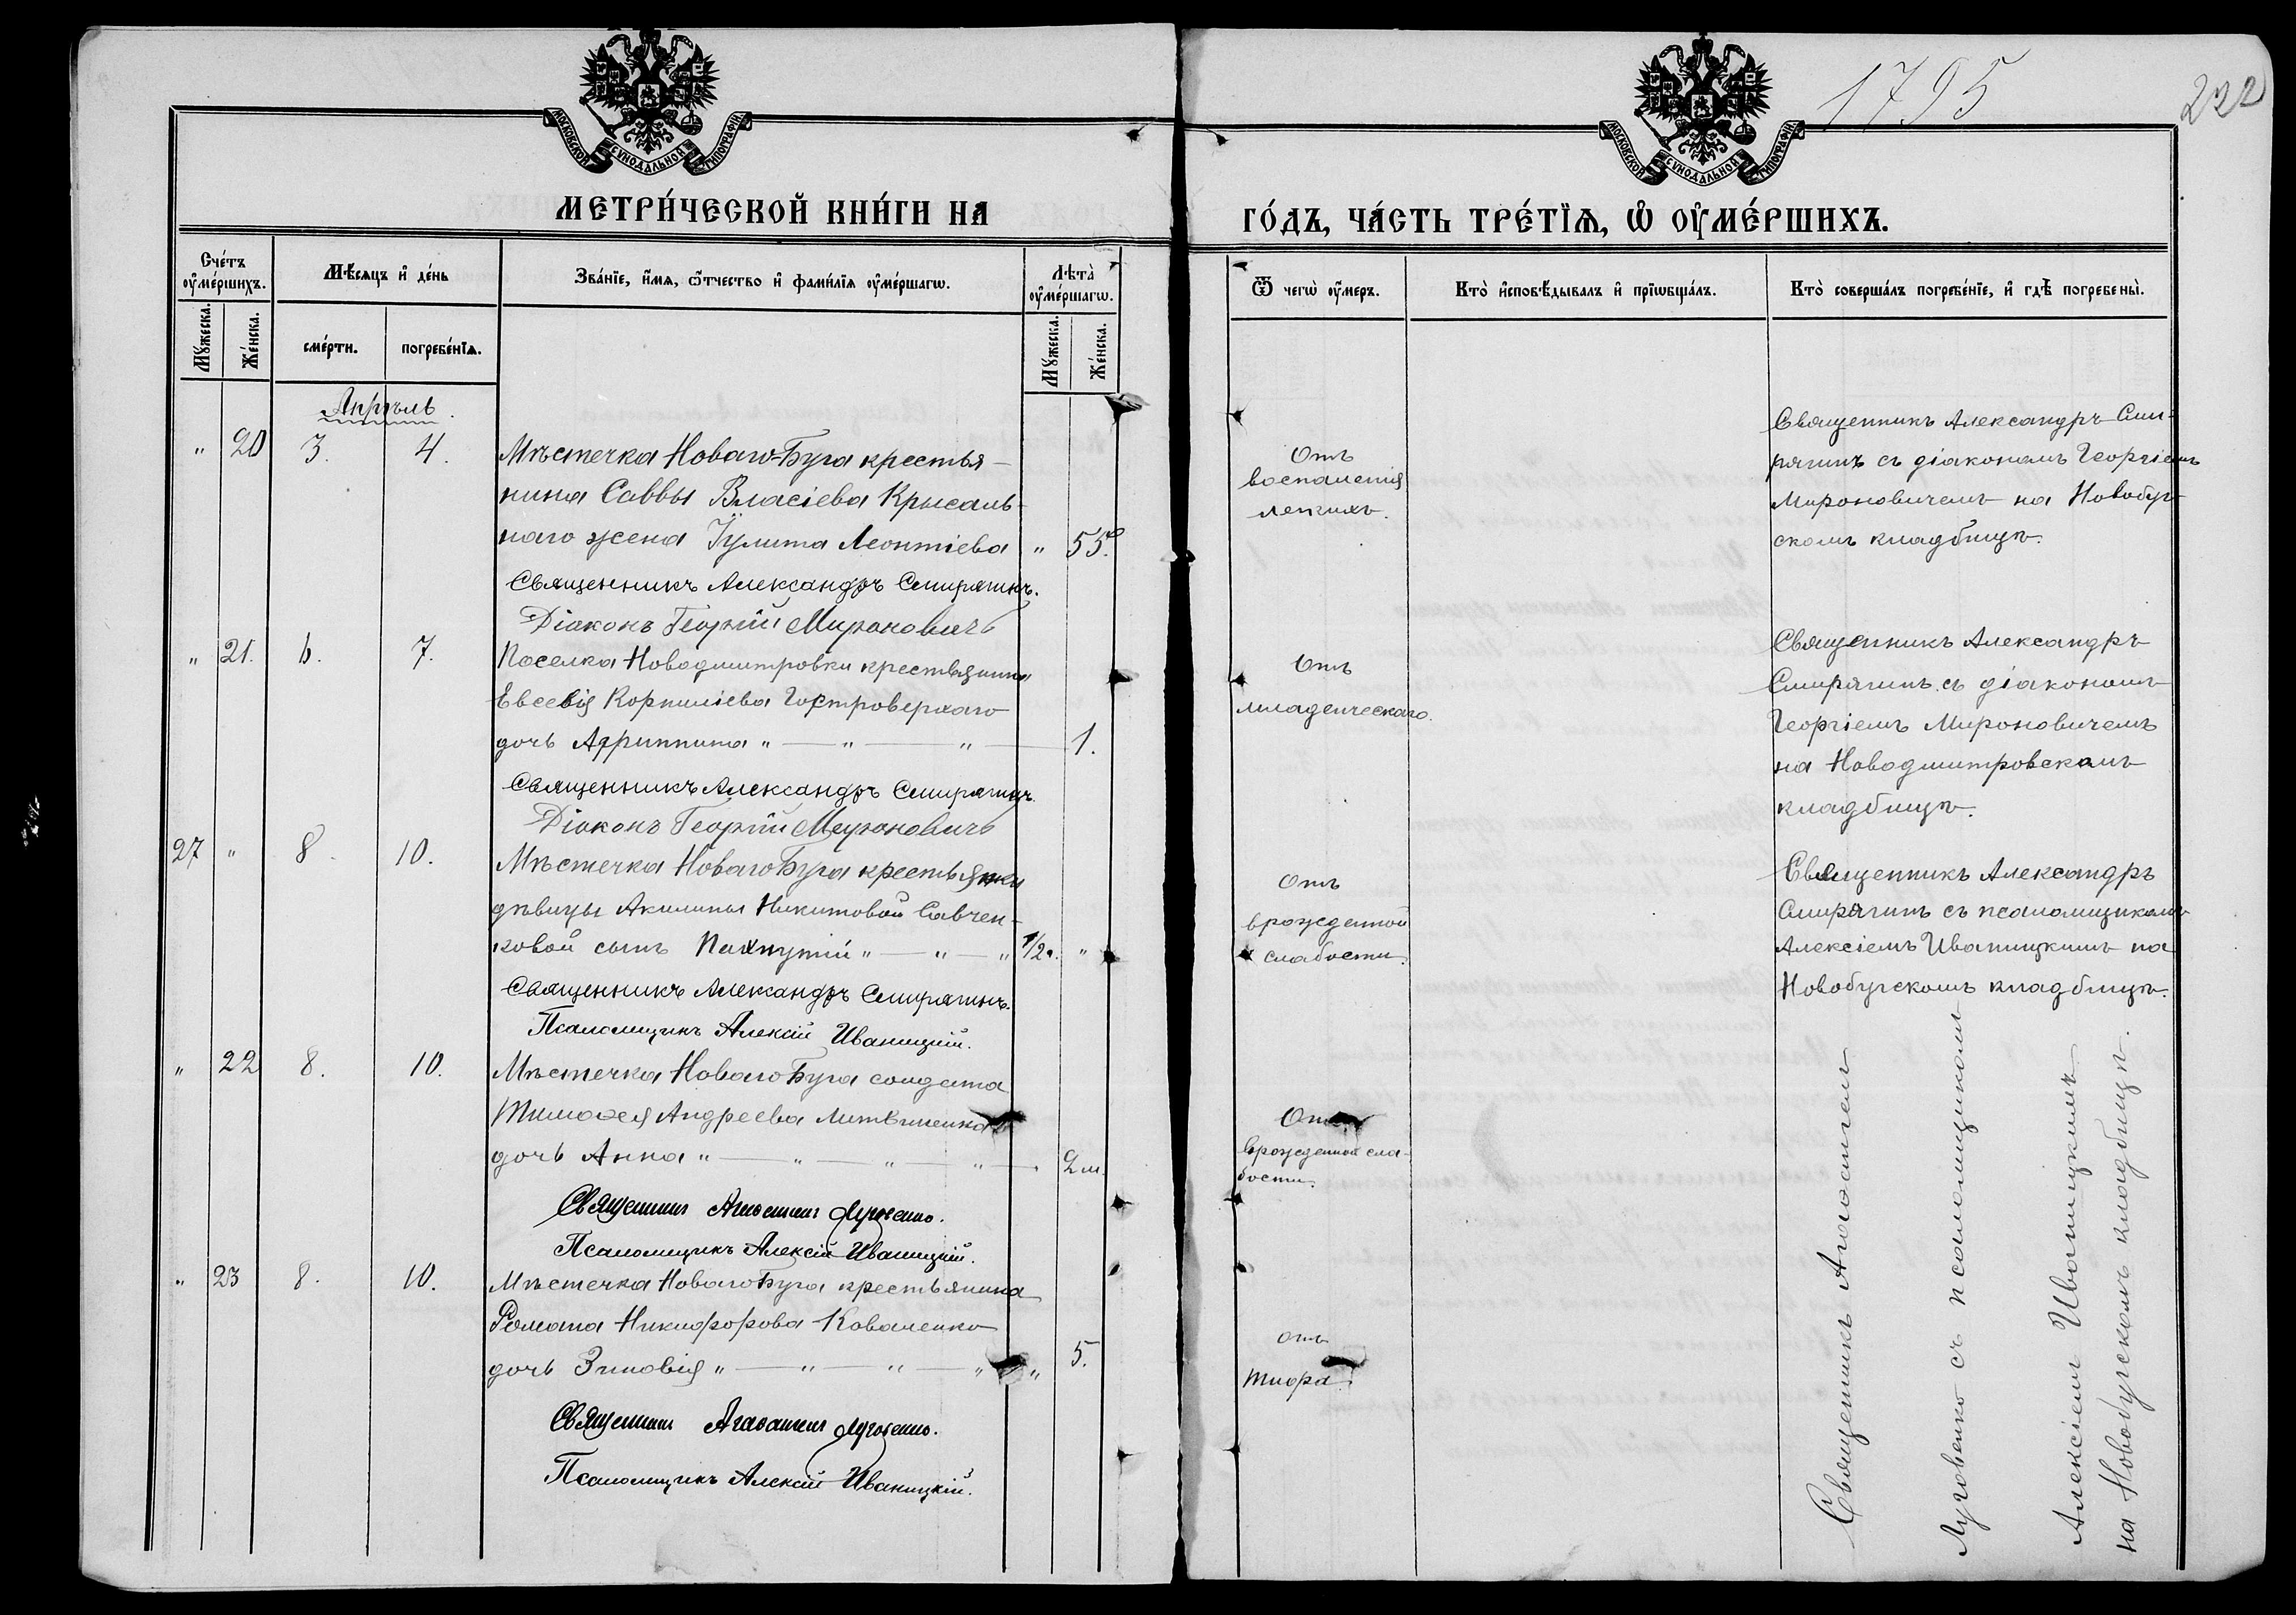 МОСКОВСКОЙ СѴНОДАЛЬНОЙ ТИПОГРАФІИ.
МЕТРИ́ЧЕСКОЙ КНИ́ГИ НА
Сче́тъ оу҆ме́ршихъ.
Мѣ́сяцъ и҆ де́нь
Зва́нїе, и҆́мя, ѿтчество и҆ фами́лїя оу҆ме́ршагѡ.
Лѣта̀ оу҆ме́ршагѡ.
Мꙋ́жеска.
Же́нска.
сме́рти.
погребе́нїѧ.
Мꙋ́жеска.
Же́нска.
Апрѣль.
" 20 3. 4. Мѣстечка Новаго-Буга крестья-
нина Саввы Власіева Крысаль-
наго жена Іулита Леонтіева " 55.
Священникъ Александръ Смирягинъ.
Діаконъ Георгій Мироновичъ
" 21. 6. 7. Поселка Новодмитровки крестьянина
Евсевія Корниліева Гостроверхаго
дочь Агриппина " — " — " — 1.
Священникъ Александръ Смирягинъ.
Діаконъ Георгій Мироновичъ
27 " 8. 10. Мѣстечка Новаго Буга крестьянки
дѣвицы Акилины Никитовой Савчен-
ковой сынъ Пахнутій " — " — " 1/2 ч. "
Священникъ Александръ Смирягинъ.
Псаломщикъ Алексій Иваницкій.
" 22 8. 10. Мѣстечка Новаго Буга солдата
Тимоѳея Андреева Литвиненкова
дочь Анна " — " — " — " — 2 м.
Священникъ Агаѳангелъ Луговенко.
Псаломщикъ Алексій Иваницкій.
" 23 8. 10. Мѣстечка Новаго Буга крестьянина
Романа Никифорова Коваленко
дочь Зиновія " — " — " — " " 5.
Священникъ Агаѳангелъ Луговенко.
Псаломщикъ Алексій Иваницкій.
1795
222
МОСКОВСКОЙ СѴНОДАЛЬНОЙ ТИПОГРАФІИ.
ГО́ДЪ, ЧА́СТЬ ТРЕ́ТЇѦ, Ѡ҆ ОУ҆МЕ́РШИХЪ.
Ѿ чегѡ̀ оу҆́меръ.
Кто̀ и҆сповѣ́дывалъ и҆ прїѡбща́лъ.
Кто̀ соверша́лъ погребе́нїе, и҆ гдѣ̀ погребены̀.
Отъ
воспаленія
легкихъ.
Священникъ Александръ Сми-
рягинъ съ діакономъ Георгіемъ
Мироновичемъ на Новобуг-
скомъ кладбищѣ.
Отъ
младенческаго.
Священникъ Александръ
Смирягинъ съ діакономъ
Георгіемъ Мироновичемъ
на Новодмитровскомъ
кладбищѣ.
Отъ
врожденной
слабости.
Священникъ Александръ
Смирягинъ съ псаломщикомъ
Алексіемъ Иваницкимъ на
Новобугскомъ кладбищѣ.
Отъ
врожденной сла-
бости.
отъ
тифа.
Священникъ Агаѳангелъ
Луговенко съ псаломщикомъ
Алексіемъ Иваницкимъ
на Новобугскомъ кладбищѣ.